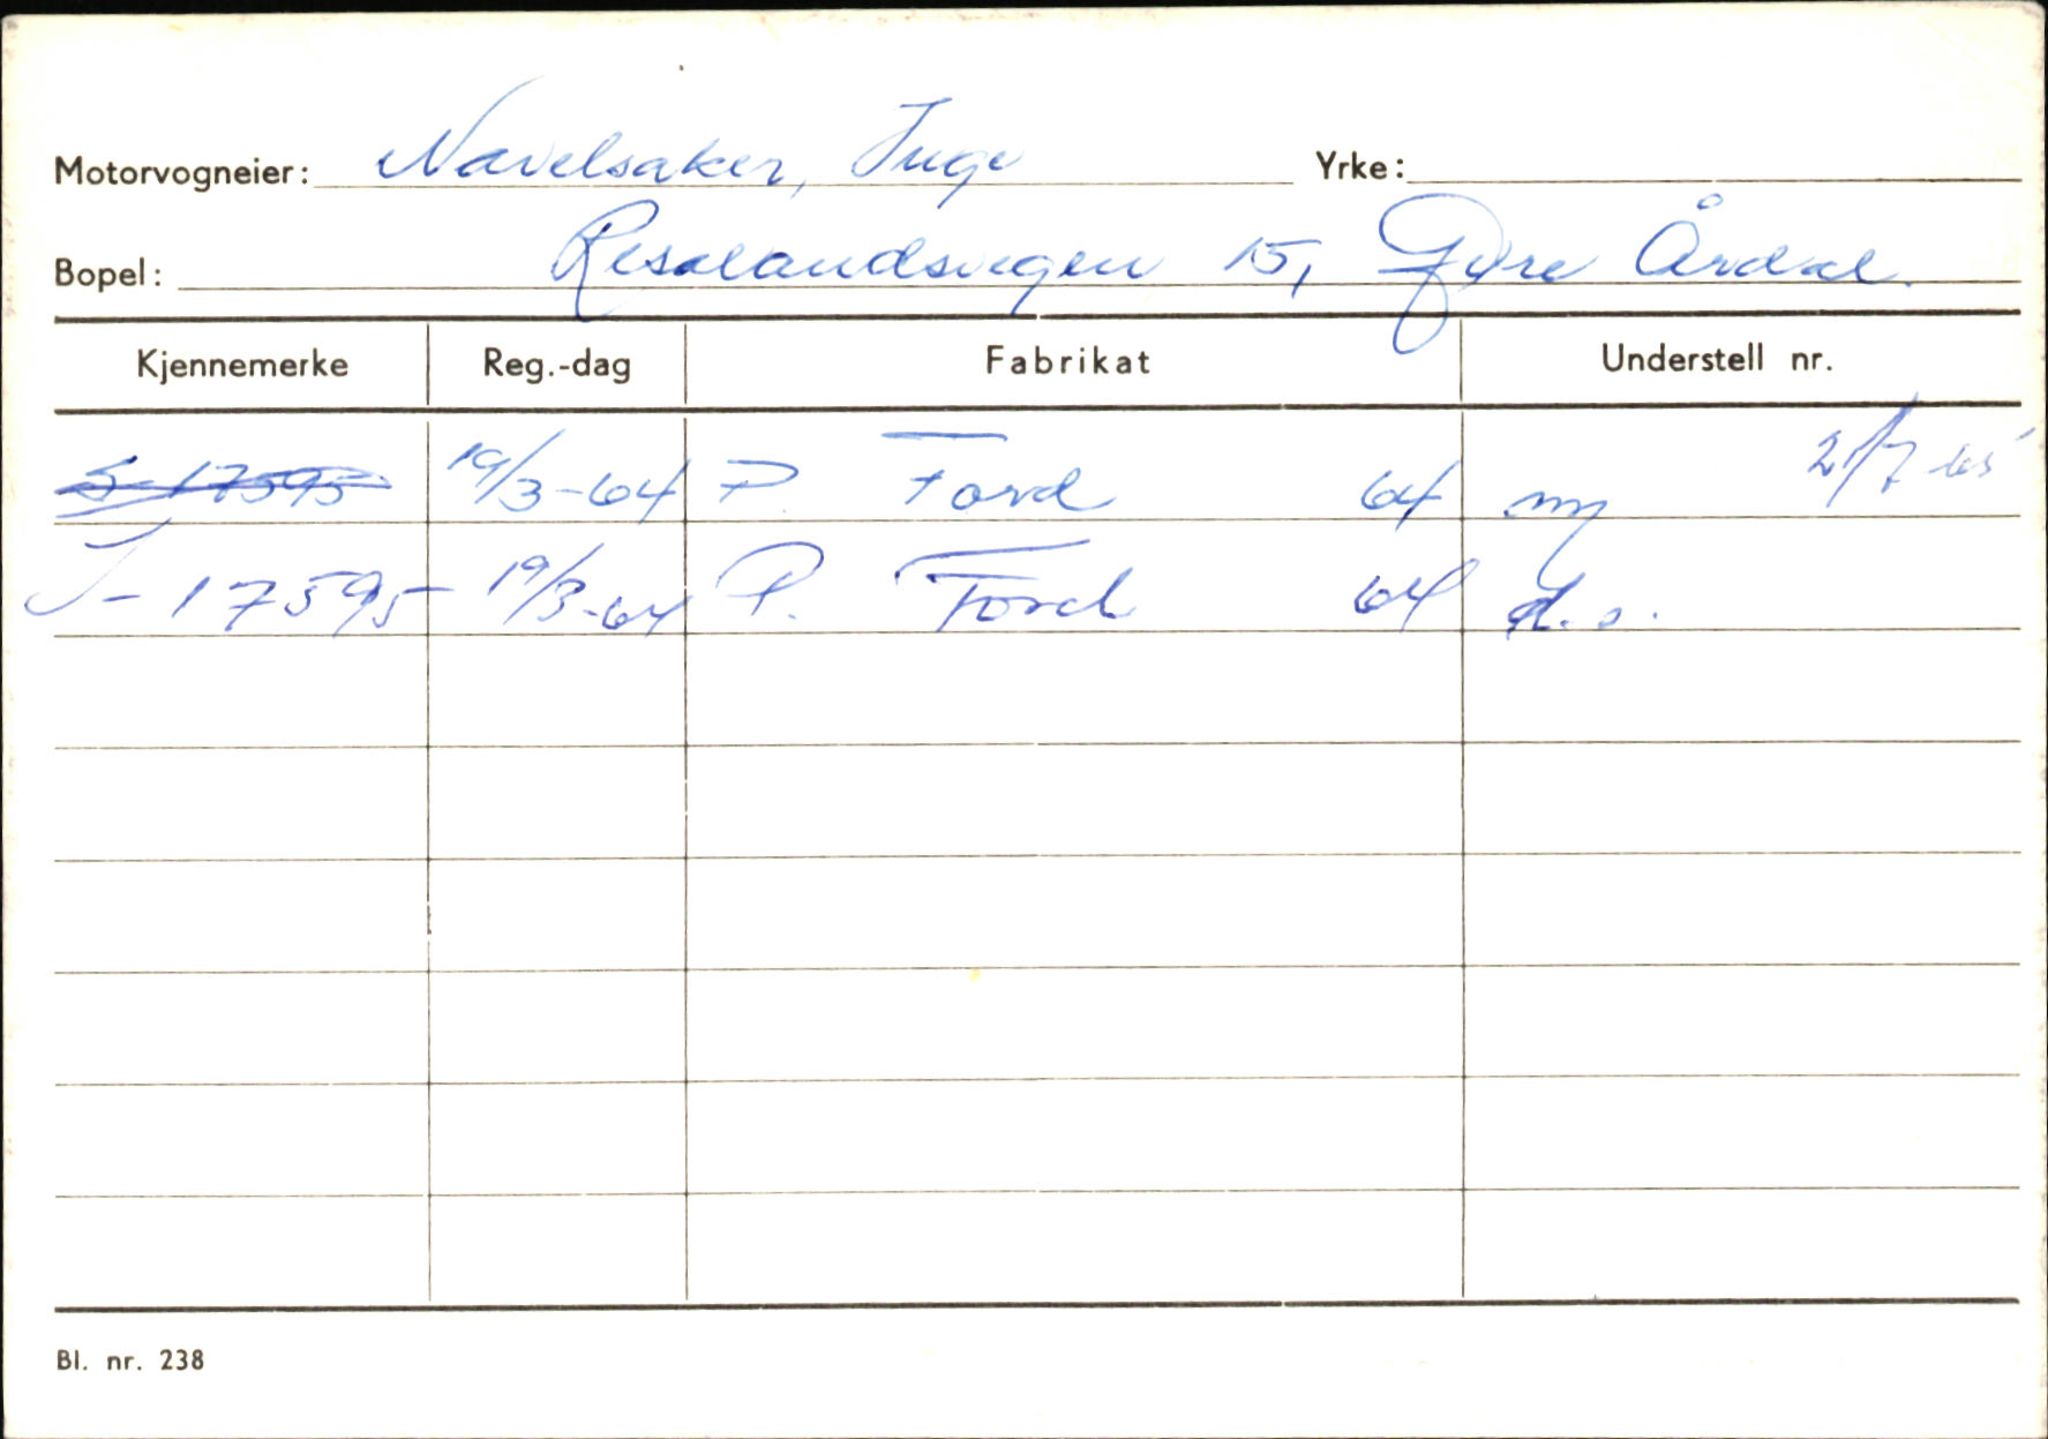 Motorvogneier: Navelsaker, Inge Yrke:
Bopel: 15, Øvre Årdal.
Kjennemerke Reg.-dag Fabrikat Understell nr.
S-17595 19/3-64 P. Ford 64 ny 21/7 65
17595 19/3-64 P. Ford 64 d.s.
Bl. nr. 238